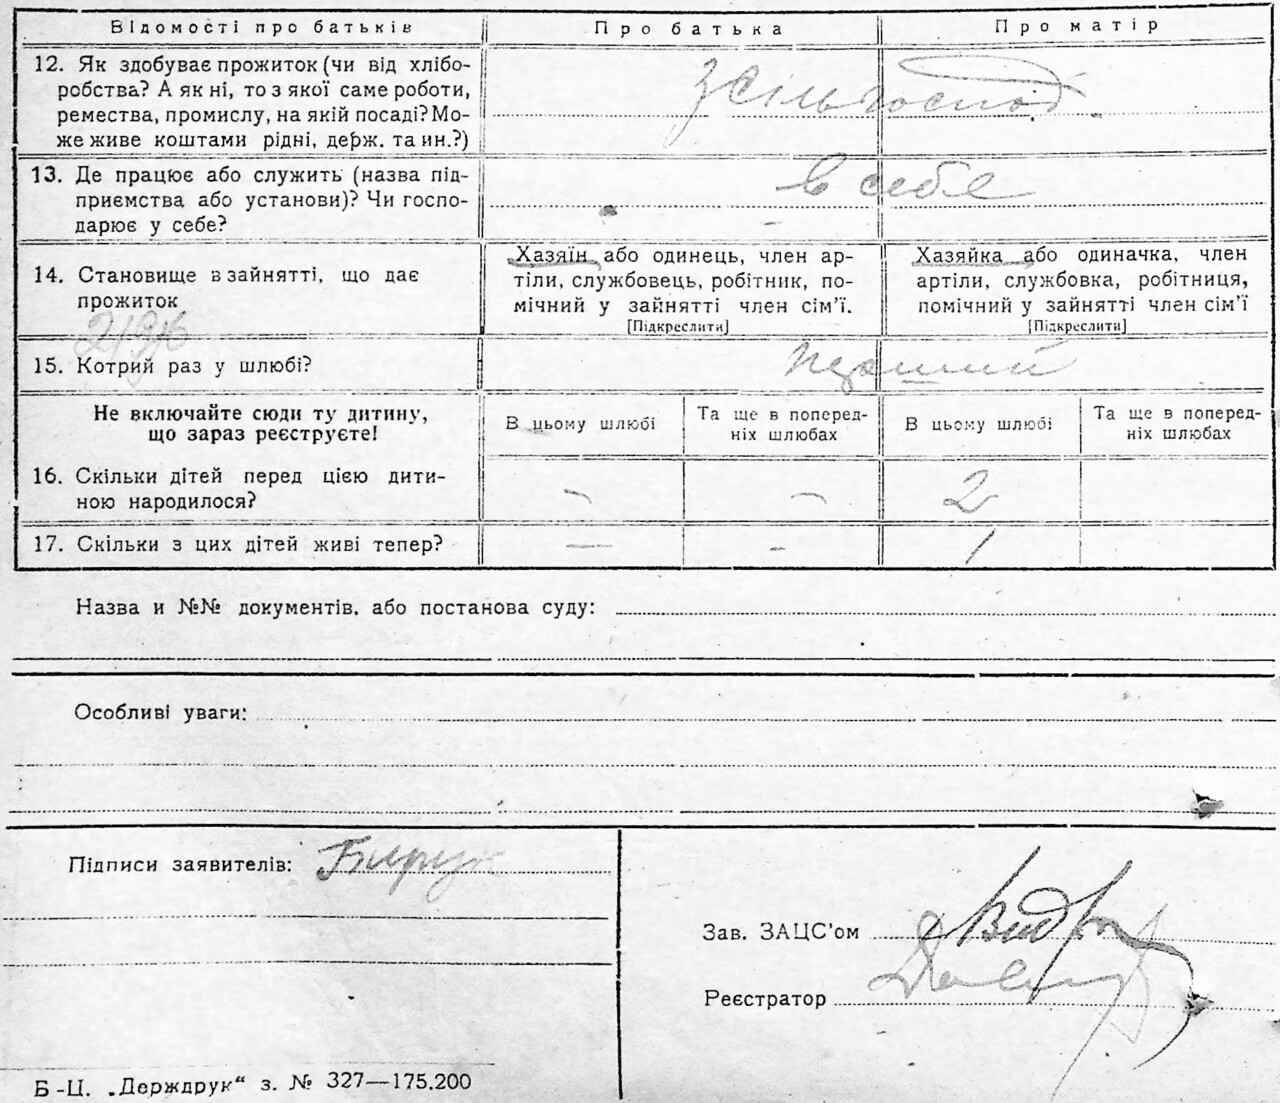 Відомості про батьків Про батька Про матір
12. Як здобуває прожиток (чи від хлібо-
робства? А як ні, то з якої саме роботи,
ремества, промислу, на якій посаді? Мо-
же живе коштами рідні, держ. та ин.?)
З сільгоспод
13. Де працює або служить (назва під-
приємства або установи)? Чи госпо-
дарює у себе?
в себе
14. Становище в зайнятті, що дає
прожиток
Хазяїн або одинець, член ар-
тіли, службовець, робітник, по-
мічний у зайнятті член сім’ї.
[Підкреслити]
Хазяйка або одиначка, член
артіли, службовка, робітниця,
помічний у зайнятті член сім’ї
[Підкреслити]
15. Котрий раз у шлюбі?
перший
Не включайте сюди ту дитину,
що зараз реєструєте!
В цьому шлюбі
Та ще в поперед-
ніх шлюбах
В цьому шлюбі
Та ще в поперед-
ніх шлюбах
16. Скільки дітей перед цією дити-
ною народилося?
– – 2
17. Скільки з цих дітей живі тепер?
— - 1
Назва и №№ документів, або постанова суду:
Особливі уваги:
Підписи заявителів: Бирук
Зав. ЗАЦС’ом
Реєстратор
Б-Ц. „Держдрук“ з. № 327—175.200